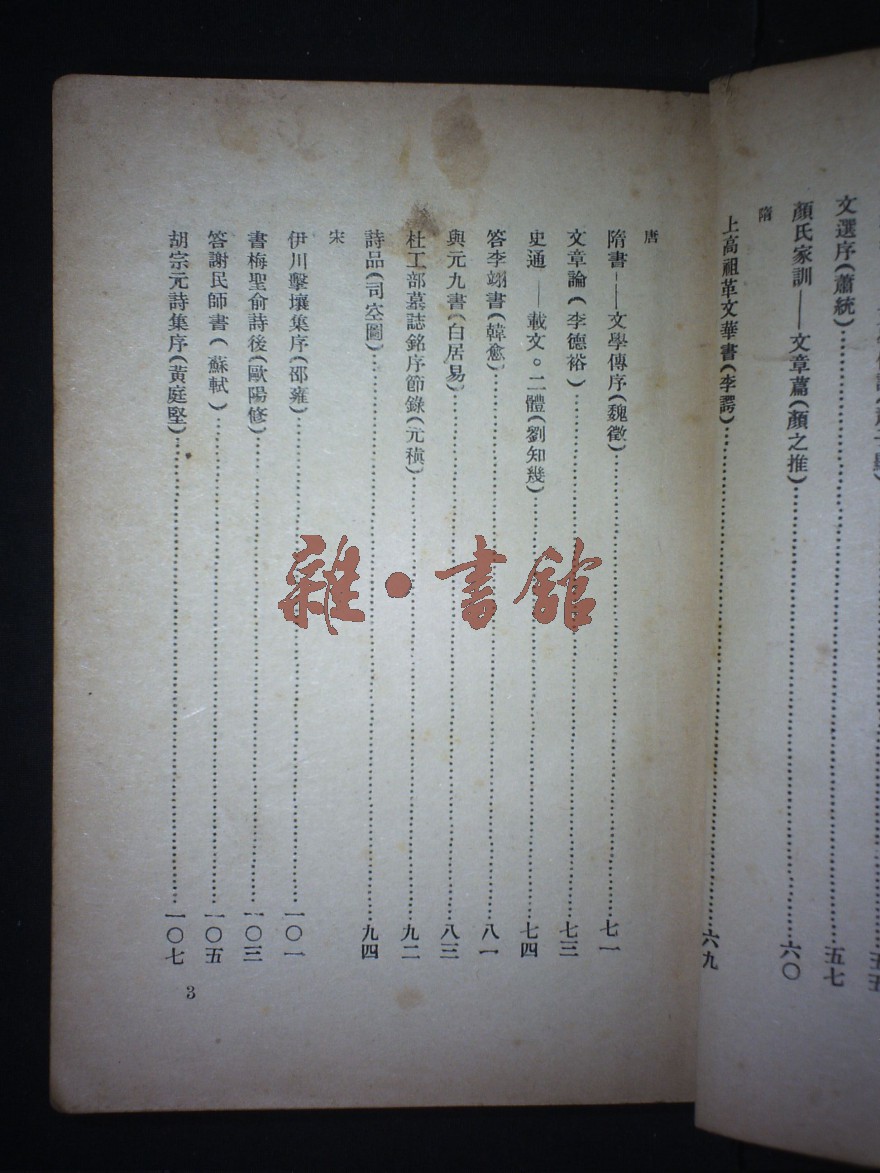 文選序(蕭統)……五七
顏氏家訓——文章篇(顏之推)……六〇
隋
上高祖革文華書(李諤)……六九
唐
隋書——文學傳序(魏徵)……七一
文章論(李德裕)……七三
史通——載文。二體(劉知幾)……七四
答李翊書(韓愈)……八一
與元九書(白居易)……八三
杜工部墓誌銘序節錄(元稹)……九二
詩品(司空圖)……九四
宋
伊川擊壤集序(邵雍)……一〇一
書梅聖俞詩後(歐陽修)……一〇三
答謝民師書(蘇軾)……一〇五
胡宗元詩集序(黃庭堅)……一〇七
3
雜·書館